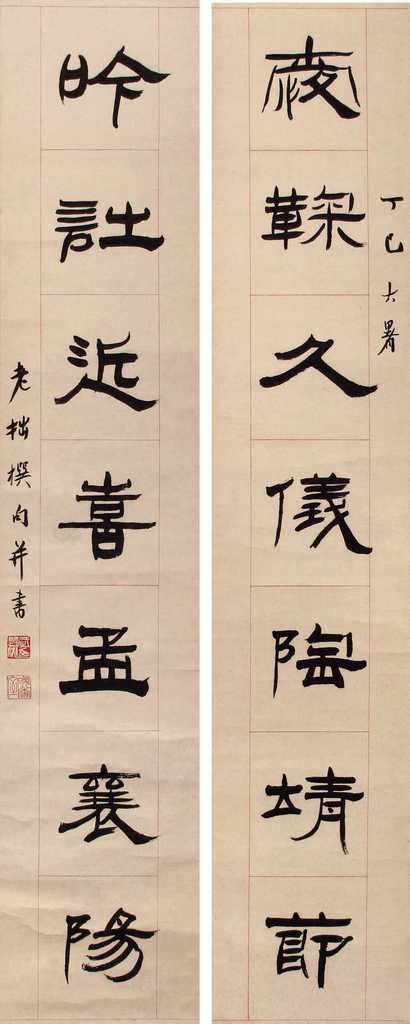 丁巳大暑
久儀陶靖節
吟近喜孟襄陽
老拙撰句并書